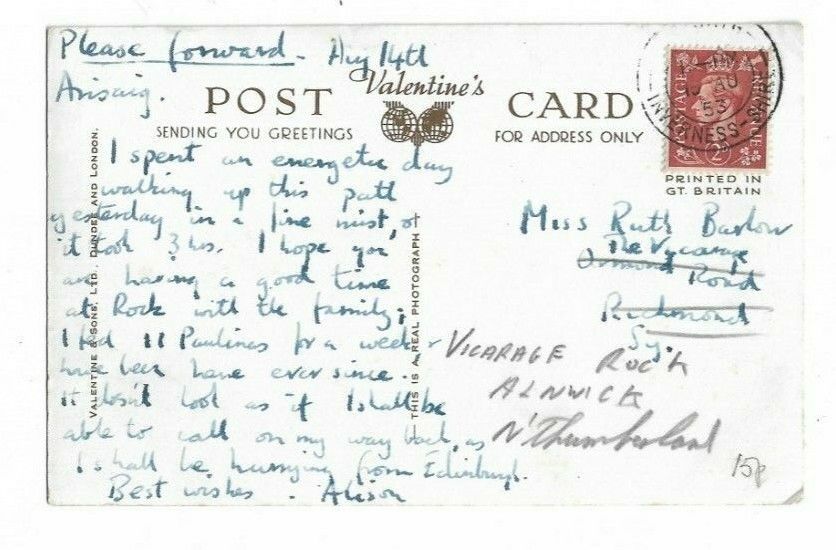 Please forward. Aug 14th
Arisaig.
Valentine's
POST CARD
SENDING YOU GREETINGS
FOR ADDRESS ONLY
I spent an energetic day
walking up this path
yesterday in a fine mist,
it took 3 hrs. I hope you
are having a good time
at Rock with the family;
I had 11 Paulinas for a week &
have been here ever since.
It doesn't look as if I shall be
able to call on my way back, as
I shall be hurrying from Edinburgh.
Best wishes - Alison
VALENTINE & SONS, LTD., DUNDEE AND LONDON.
THIS IS A REAL PHOTOGRAPH
POSTAGE
REVENUE
2D
AU
53
INVERNESS-SHIRE
PRINTED IN
GT. BRITAIN
Miss Ruth Barlow
The Vicarage
Ormond Road
Richmond
Sy.
VICARAGE ROCK
ALNWICK
N'Thumberland
15p